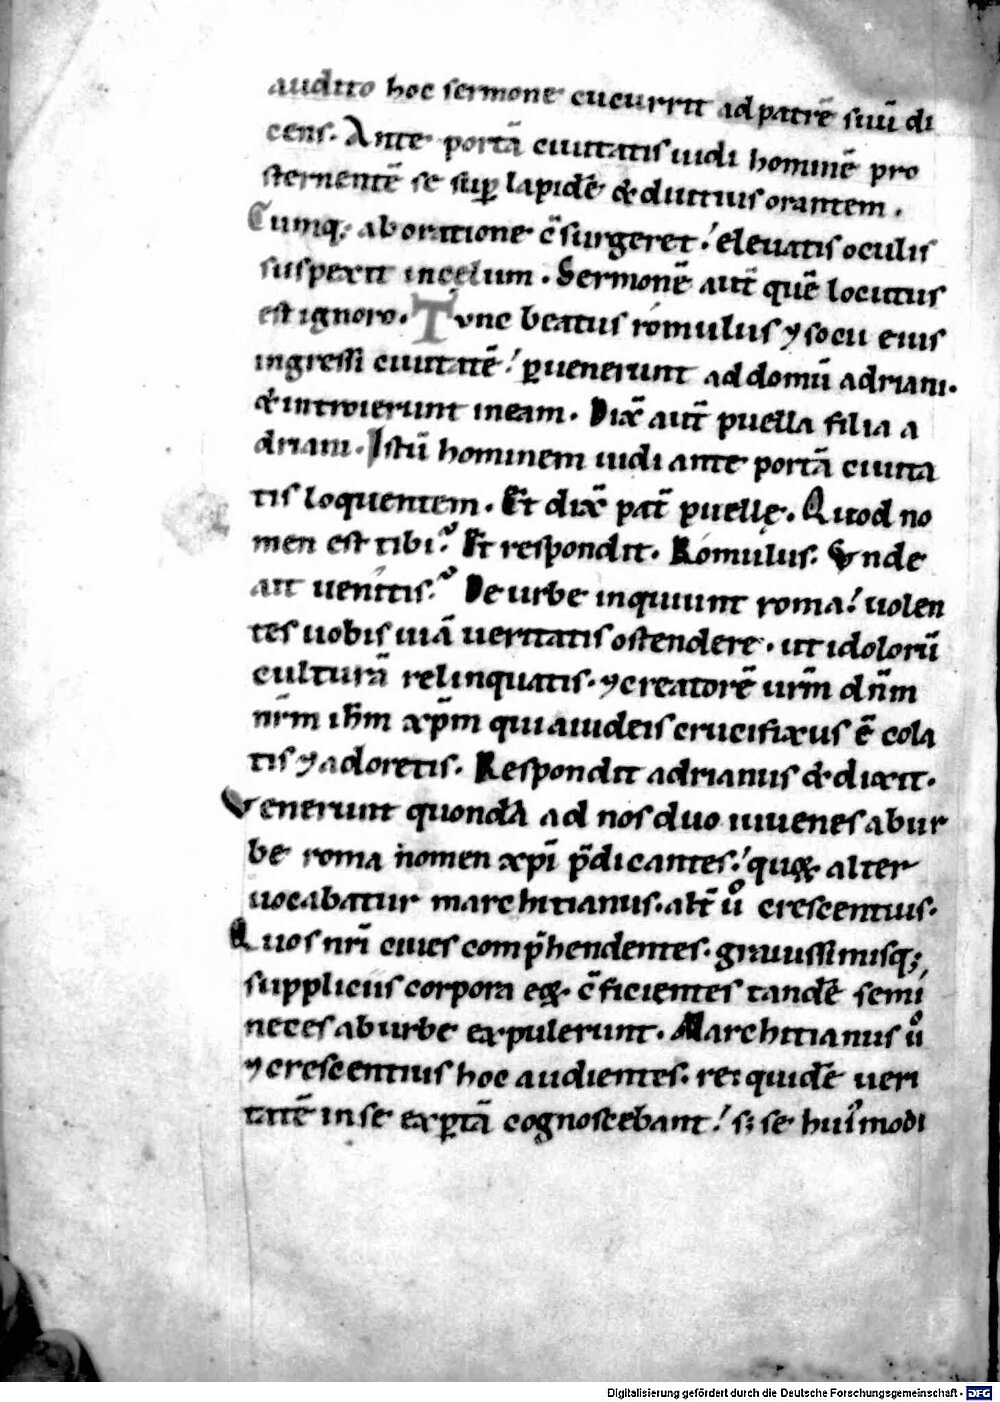 audito hoc sermone cucurrit ad patrē suū di
cens. Ante portā ciuitatis uidi hominē pro
sternentē se sup̱ lapidē & diutius orantem.
Cumq; ab oratione c̄surgeret. eleuatis oculis
suspexit in celum. Sermonē aut̄ quē locutus
est ignoro. Tunc beatus romulus ⁊ socii eius
ingressi ciuitatē. p̱uenerunt ad domū adriani.
& introierunt in eam. Dix̄ aut̄ puella filia a
driani. Istū hominem uidi ante portā ciuita
tis loquentem. Et dix̄ pat̄ puellę. Quod no
men est tibi? Et respondit. Romulus. Vnde
ait uenitis? De urbe inquiunt roma. uolen
tes uobis uiā ueritatis ostendere. ut idolorū
culturā relinquatis. ⁊ creatorē urm̄ dn̄m
nr̄m ih̄m xp̄m qui a iudeis crucifixus ē cola
tis ⁊ adoretis. Respondit adrianus & dixit.
Venerunt quondā ad nos duo iuuenes ab ur
be roma nomen xp̄i p̄dicantes. quoꝝ alter
uocabatur marchitianus. alt̄ uͦ crescentius.
Quos nr̄i ciues comp̄hendentes. grauissimisq;
suppliciis corpora eoꝝ c̄ficientes tandē semi
neces ab urbe expulerunt. Marchitianus uͦ
⁊ crescentius hoc audientes. rei quidē ueri
tatē in se exp̱tā cognoscebant. s; se hui᷒modi
Digitalisierung gefördert durch die Deutsche Forschungsgemeinschaft - DFG